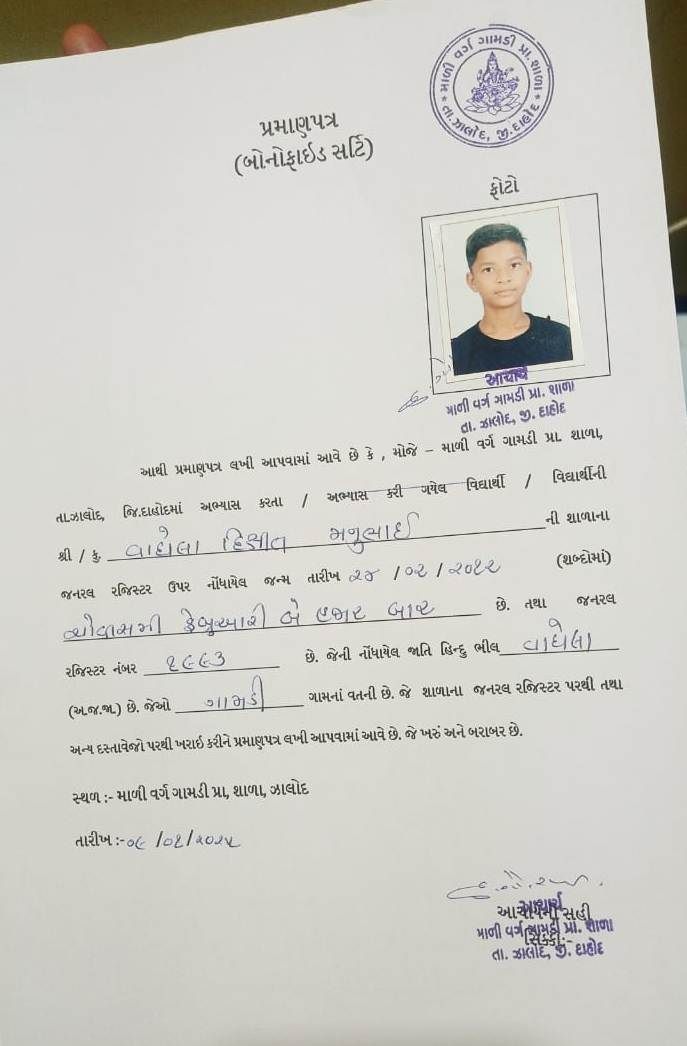 માળી વર્ગ ગામડી પ્રા. શાળા
તા. ઝાલોદ, જી. દાહોદ
પ્રમાણપત્ર
(બોનોફાઇડ સર્ટિ)
ફોટો
આચાર્ય
માળી વર્ગ ગામડી પ્રા. શાળા
તા. ઝાલોદ, જી. દાહોદ
આથી પ્રમાણપત્ર લખી આપવામાં આવે છે કે , મોજે – માળી વર્ગ ગામડી પ્રા. શાળા,
તા.ઝાલોદ, જિ.દાહોદમાં અભ્યાસ કરતા / અભ્યાસ કરી ગયેલ વિદ્યાર્થી / વિદ્યાર્થીની
શ્રી / કુ. વાઘેલા હિક્ષીત મનુભાઈ ની શાળાના
જનરલ રજિસ્ટર ઉપર નોંધાયેલ જન્મ તારીખ ૨૪ /૦૨ /૨૦૧૨ (શબ્દોમાં)
ચોવીસમી ફેબ્રુઆરી બે હજાર બાર છે. તથા જનરલ
રજિસ્ટર નંબર ૧૯૯૩ છે. જેની નોંધાયેલ જાતિ હિન્દુ ભીલ વાઘેલા
(અ.જ.જા.) છે. જેઓ ગામડી ગામનાં વતની છે. જે શાળાના જનરલ રજિસ્ટર પરથી તથા
અન્ય દસ્તાવેજો પરથી ખરાઇ કરીને પ્રમાણપત્ર લખી આપવામાં આવે છે. જે ખરું અને બરાબર છે.
સ્થળ :- માળી વર્ગ ગામડી પ્રા, શાળા, ઝાલોદ
તારીખ :- ૦૯ /૦૧/૨૦૨૫
આચાર્ય
આચાર્યની સહી
માળી વર્ગ ગામડી પ્રા. શાળા
સિક્કો:-
તા. ઝાલોદ, જી. દાહોદ